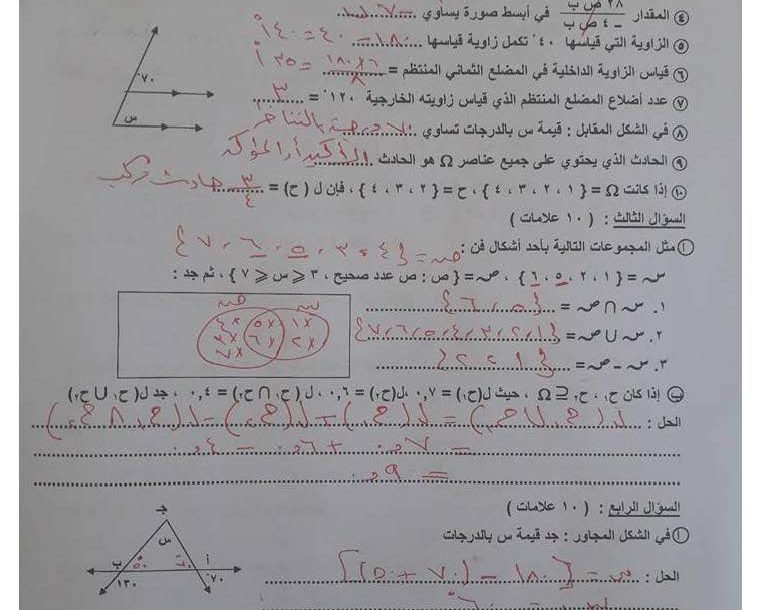 ④ المقدار ٢٨ ص ب / - ٤ ص ب في أبسط صورة يساوي
⑤ الزاوية التي قياسها ٤٠° تكمل زاوية قياسها ١٨٠ - ٤٠ = ١٤٠°
⑥ قياس الزاوية الداخلية في المضلع الثماني المنتظم = ١٨٠ × ٦ / ٨ = ١٣٥°
⑦ عدد أضلاع المضلع المنتظم الذي قياس زاويته الخارجية ١٢٠° = ٣
⑧ في الشكل المقابل : قيمة س بالدرجات تساوي ٧٠ درجة بالتناظر
⑨ الحادث الذي يحتوي على جميع عناصر Ω هو الحادث الأكيد أو المؤكد
⑩ إذا كانت Ω = { ١ ، ٢ ، ٣ ، ٤ } ، ح = { ٢ ، ٣ ، ٤ } ، فإن ل ( ح ) = ٣/٤ حادث مركب
٧٠
س
السؤال الثالث : ( ١٠ علامات )
① مثل المجموعات التالية بأحد أشكال فن : ص = { ٣ ، ٤ ، ٥ ، ٦ ، ٧ }
س = { ١ ، ٢ ، ٥ ، ٦ } ، ص = { ص : ص عدد صحيح ، ٣ ⩽ س ⩽ ٧ } ، ثم جد :
١. س ∩ ص = { ٥ ، ٦ }
٢. س ∪ ص = { ١ ، ٢ ، ٣ ، ٤ ، ٥ ، ٦ ، ٧ }
٣. س - ص = { ١ ، ٢ }
س ص
١× ٥× ٤×
٢× ٦× ٣×
٧×
ب إذا كان ح١ ، ح٢ ⊆ Ω ، حيث ل(ح١) = ٠,٧ ، ل(ح٢) = ٠,٦ ، ل ( ح١ ∩ ح٢) = ٠,٤ ، جد ل( ح١ ∪ ح٢)
الحل : ل ( ح١ ∪ ح٢ ) = ل ( ح١ ) + ل ( ح٢ ) - ل ( ح١ ∩ ح٢ )
= ٠,٧ + ٠,٦ - ٠,٤
= ٠,٩
السؤال الرابع : ( ١٠ علامات )
① في الشكل المجاور : جد قيمة س بالدرجات
الحل : س = ١٨٠ - [ ( ٧٠ + ٥٠ ) ]
س = ٦٠
جـ
س
ب ٥٠ ٧٠ أ
١٣٠ ٧٠